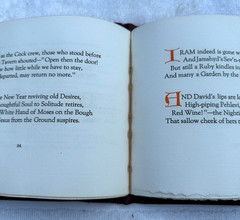 as the Cock crew, those who stood before
Tavern shouted—"Open then the door!
how little while we have to stay,
departed, may return no more."
New Year reviving old Desires,
thoughtful Soul to Solitude retires,
White Hand of Moses on the Bough
Jesus from the Ground suspires.
IRAM indeed is gone w
And Jamshyd's Sev'n-r
But still a Ruby kindles in
And many a Garden by the
AND David's lips are l
High-piping Pehlevi,
Red Wine!"—the Nighti
That sallow cheek of hers t